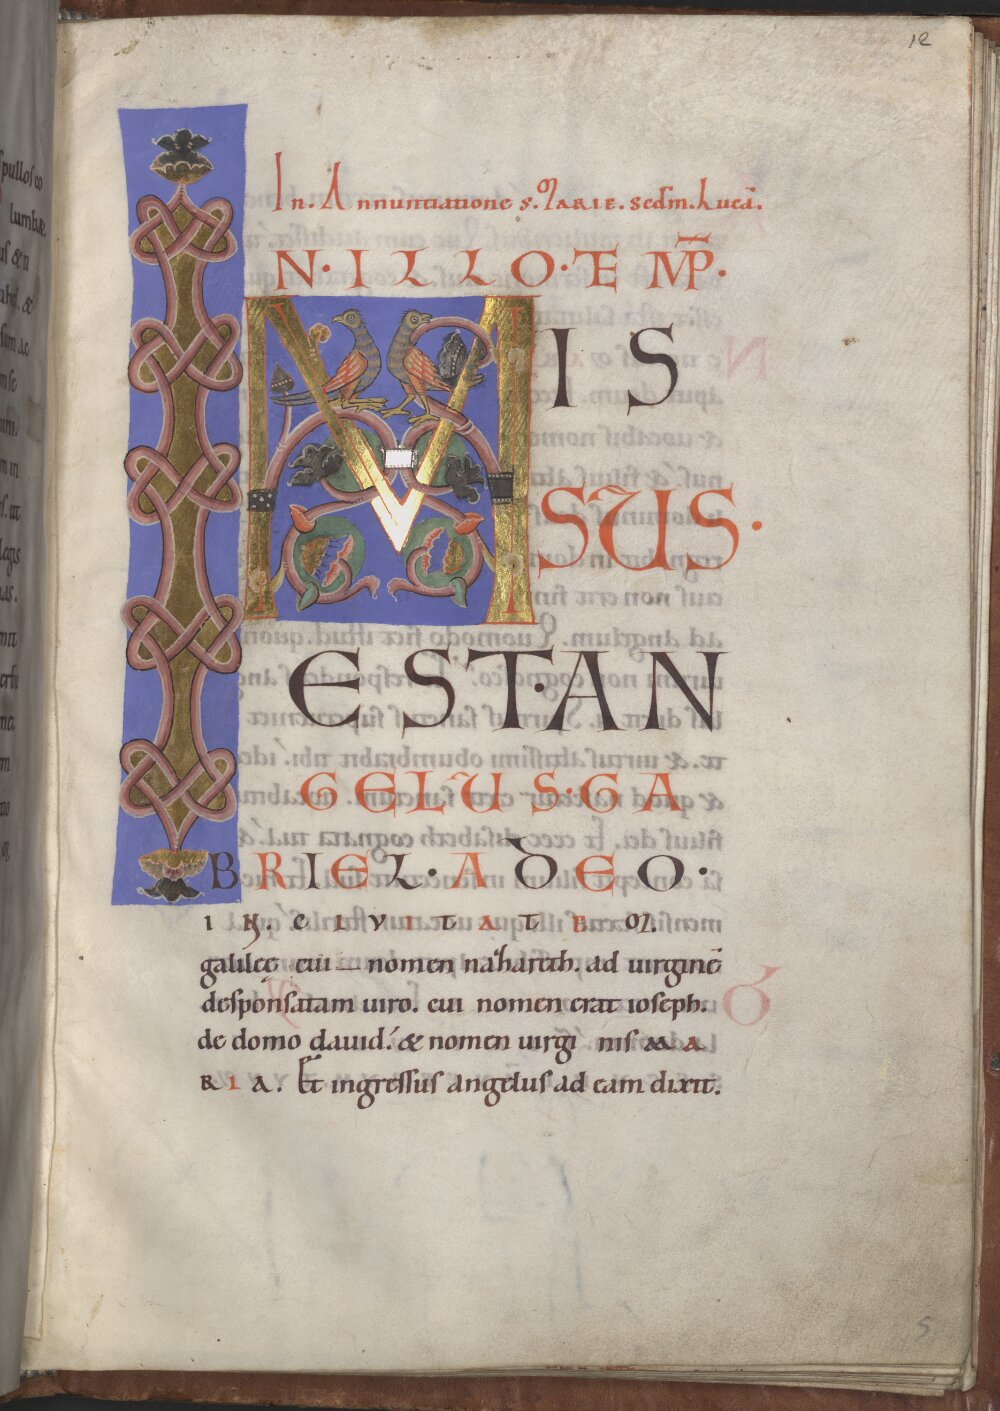 12
In. Annuntiatione s. MARIE. scdm. Lucā.
IN. ILLO. TEMP̄.
MIS
SUS.
EST. AN
GELUS. GA
BRIEL. A DEO.
IN. CIVITATEM.
galileę cui nomen nazhareth. ad uirginē
desponsatam uiro. cui nomen erat ioseph.
de domo dauid. & nomen uirginis MA
RIA. Et ingressus angelus ad eam dixit.
5